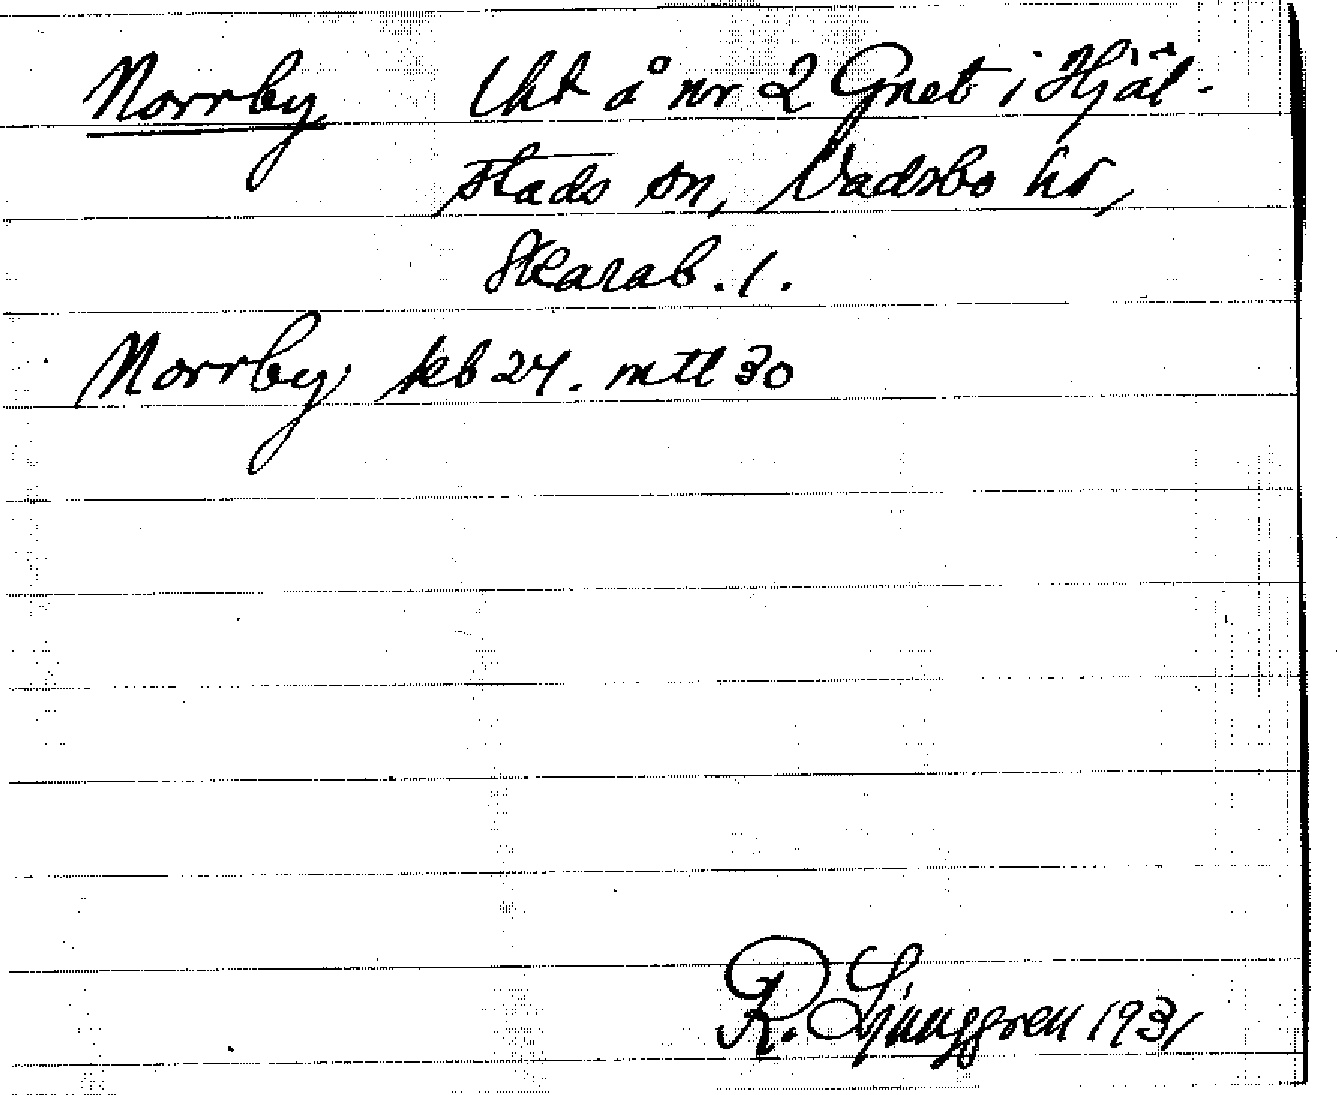 Norrby lht å nr 2 Gnet i Hjäl-
stads sn, Vadsbo hd,
Skarab. l.
Norrby jeb 24. mtl 30
R. Ljunggren 1931